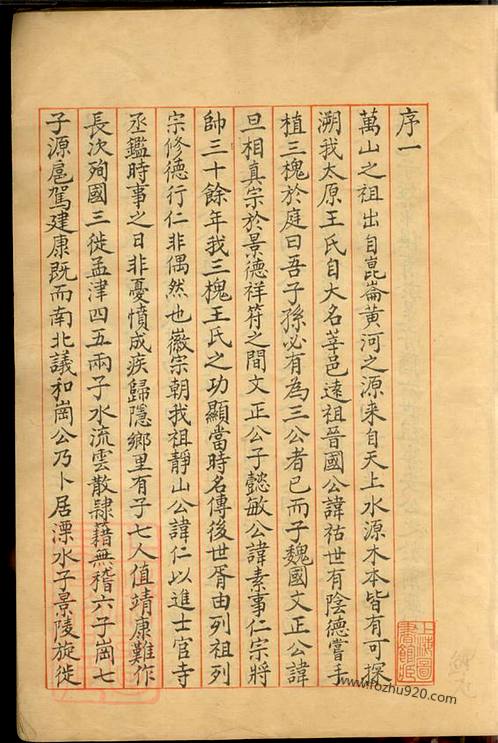 序一
萬山之祖出自崑崙黃河之源来自天上水源木本皆有可探
溯我太原王氏自大名莘邑遠祖晉國公諱祐世有陰德嘗手
植三槐於庭曰吾子孫必有為三公者已而子魏國文正公諱
旦相真宗於景德祥符之間文正公子懿敏公諱素事仁宗將
帥三十餘年我三槐王氏之功顯當時名傳後世胥由列祖列
宗修德行仁非偶然也徽宗朝我祖靜山公諱仁以進士官寺
丞鑑時事之日非憂憤成疾歸隱鄉里有子七人值靖康難作
長次殉國三徙孟津四五兩子水流雲散隸藉無稽六子崗七
子源扈駕建康既而南北議和崗公乃卜居溧水子景陵旋徙
上海圖
書館藏
www.fozhu920.com